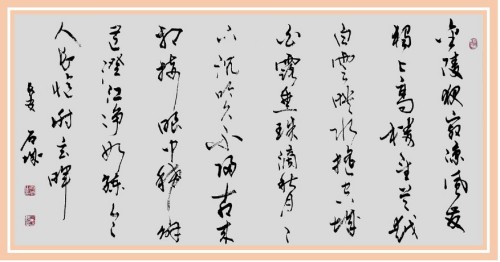 金陵夜寂凉风发
独上高楼望吴越
白云映水摇空城
白露垂珠滴秋月〻
下沉吟久不归古来
相接眼中稀解
道澄江净如练令
人长忆谢玄晖